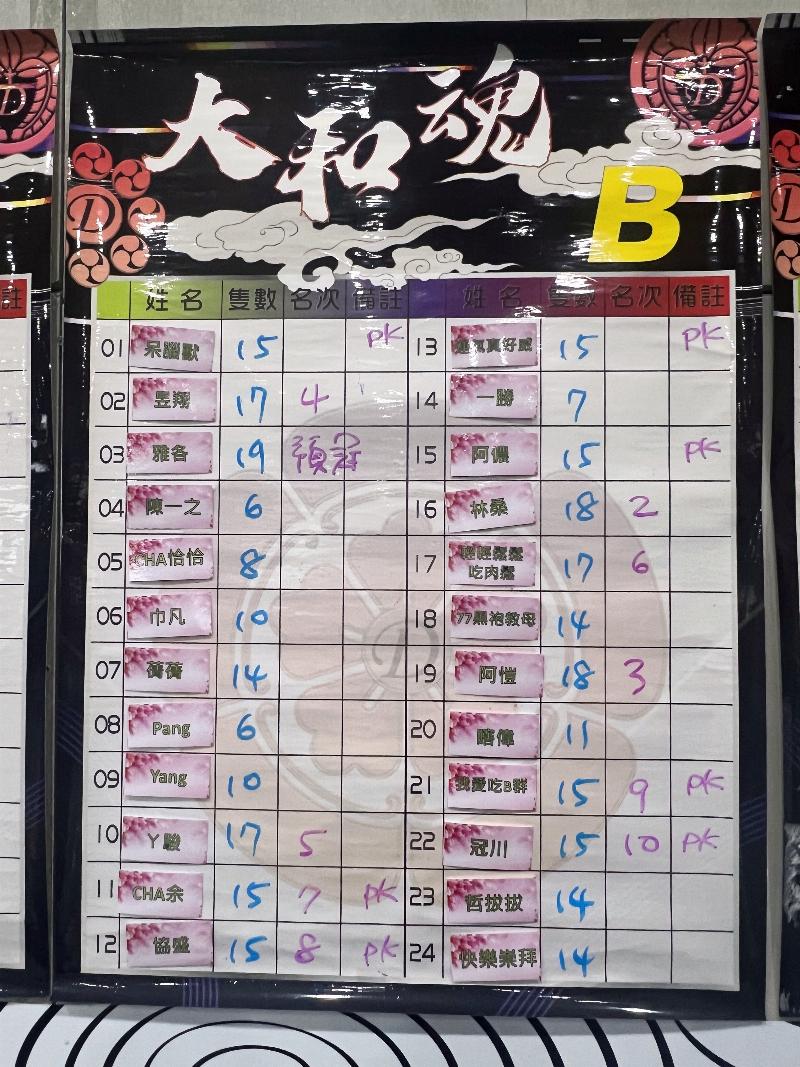 大和魂
B
姓名 隻數 名次 備註 姓名 隻數 名次 備註
01 呆腦獸 15 PK 13 真好感 15 PK
02 昱翔 17 4 14 一勝 7
03 雅各 19 預冠 15 阿儂 15 PK
04 陳一之 6 16 林桑 18 2
05 CHA恰恰 8 17 輕輕鬆鬆吃肉鬆 17 6
06 巾凡 10 18 77黑袍教母 14
07 蒨蒨 14 19 阿愷 18 3
08 Pang 6 20 偉 11
09 Yang 10 21 我愛吃B群 15 9 PK
10 ㄚ駿 17 5 22 冠川 15 10 PK
11 CHA余 15 7 PK 23 哲拔拔 14
12 協盛 15 8 PK 24 快樂崇拜 14
D
註